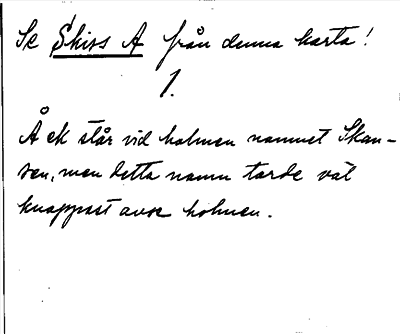 Se Skiss A från denna karta!
1.
Å ek står vid holmen namnet Skan-
sen, men detta namn torde väl
knappast avse holmen.